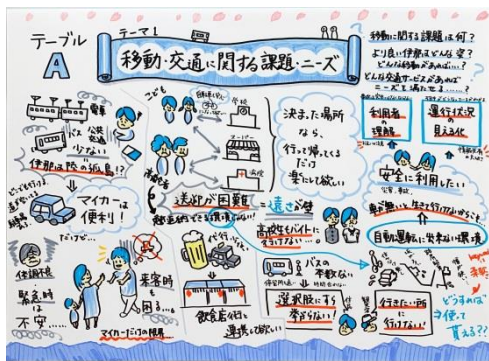 テーブル
A
テーマ1
移動・交通に関する課題・ニーズ
移動に関する課題は何？
より良い伊那はどんな姿？
どんな移動があれば…？
どんな交通サービスがあれば
ニーズを満たせる……？
電車
バス 公共
交通
少ない
伊那は陸の孤島！？
マイカーは
便利！
だけど…
体調不良
緊急時
は
不安……
乗客時
も
困る…。
マイカーだけの限界
こども
学校
スーパー
病院
高齢者
送迎が困難
決まった場所
なら、
行って帰ってくる
だけ
楽にして欲しい
遠さが壁
高校生もバイトに
行けない…。
飲食店公社と
連携して欲しい
バスの
本数ない
選択肢にすら
挙がらない！
利用者
理解
運行状況の
見える化
安全に利用したい
車無いと生きて行けないからこそ
自動運転に出来ない環境
行きたい所に
行けない！
どうすれば
使って
貰える？？